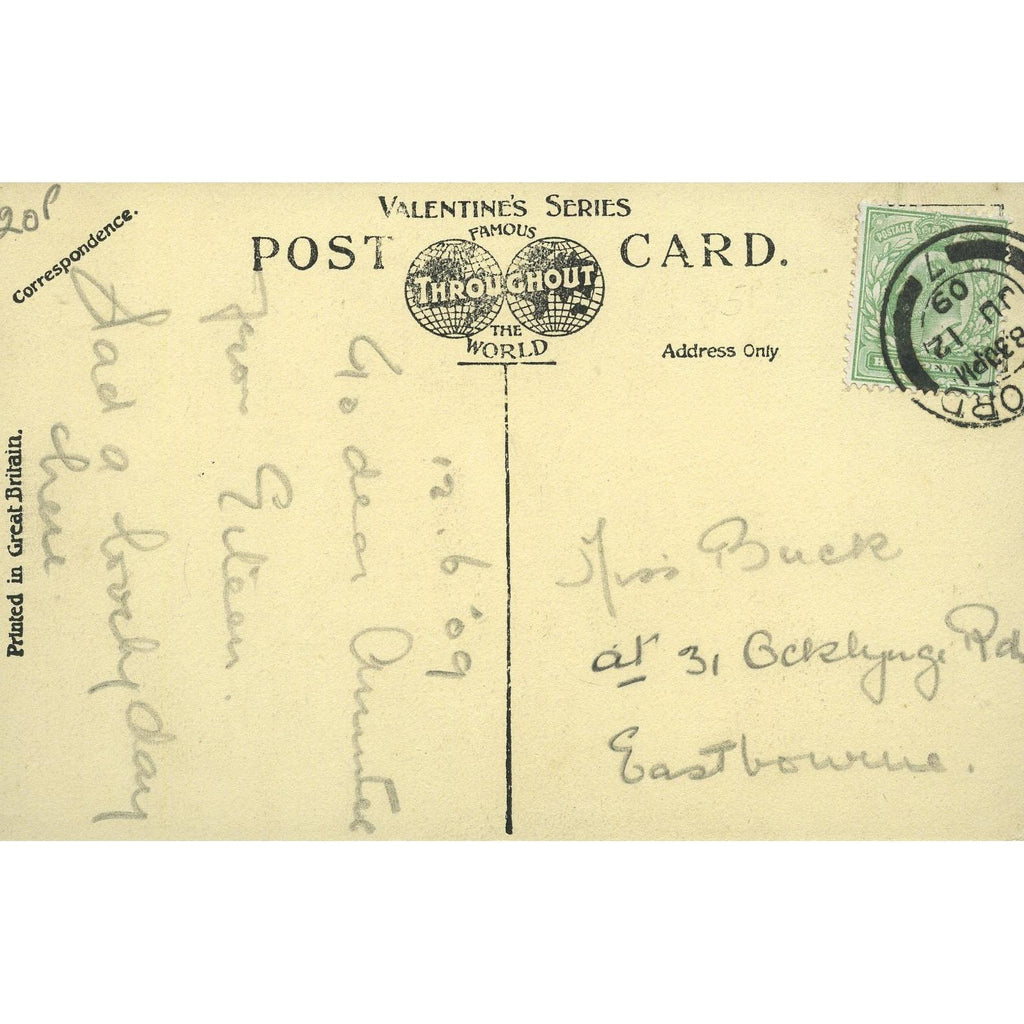 20P
Correspondence.
VALENTINE'S SERIES
FAMOUS
POST CARD.
THROUGHOUT
THE
WORLD
Address Only
Printed in Great Britain.
POSTAGE
7
JU 12
09
8 30 PM
ORD
12.6.'09
To dear Auntie
from Eileen.
Had a lovely day
here.
Miss Buck
at 31 Ocklynge Rd.
Eastbourne.